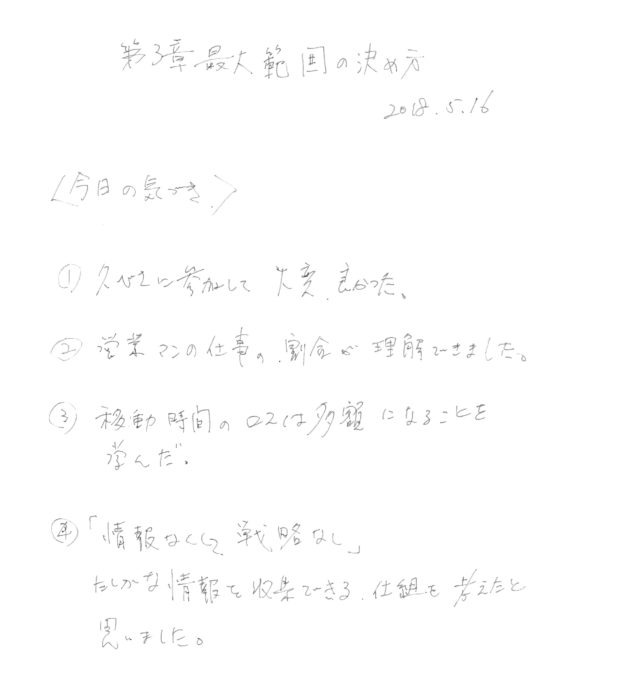 第3章最大範囲の決め方
2018.5.16
〈今日の気づき〉
① 久しぶりに参加して 大変、良かった。
② 営業マンの仕事の、割合が理解できました。
③ 移動時間のロスは多額になることを
学んだ。
④ 「情報なくして戦略なし」
たしかな情報を収集できる、仕組を考えたと
思いました。